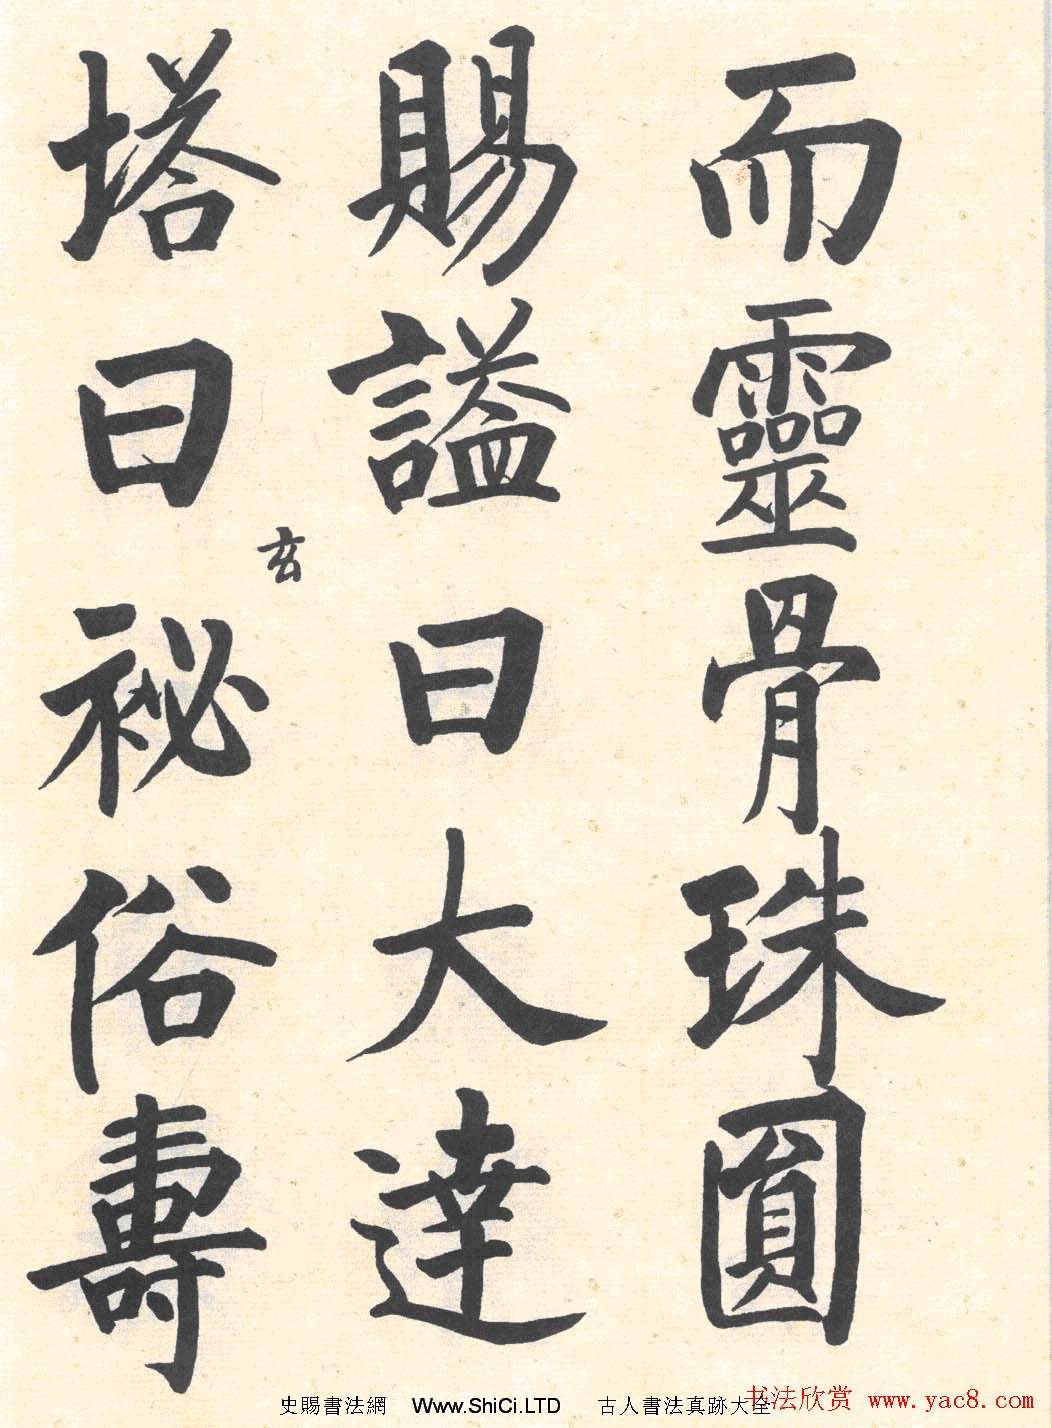 而靈骨珠圓
賜謚曰大達
玄
塔曰祕俗壽
史賜書法網 Www.ShiCi.LTD 古人書法真跡大全
书法欣赏 www.yac8.com